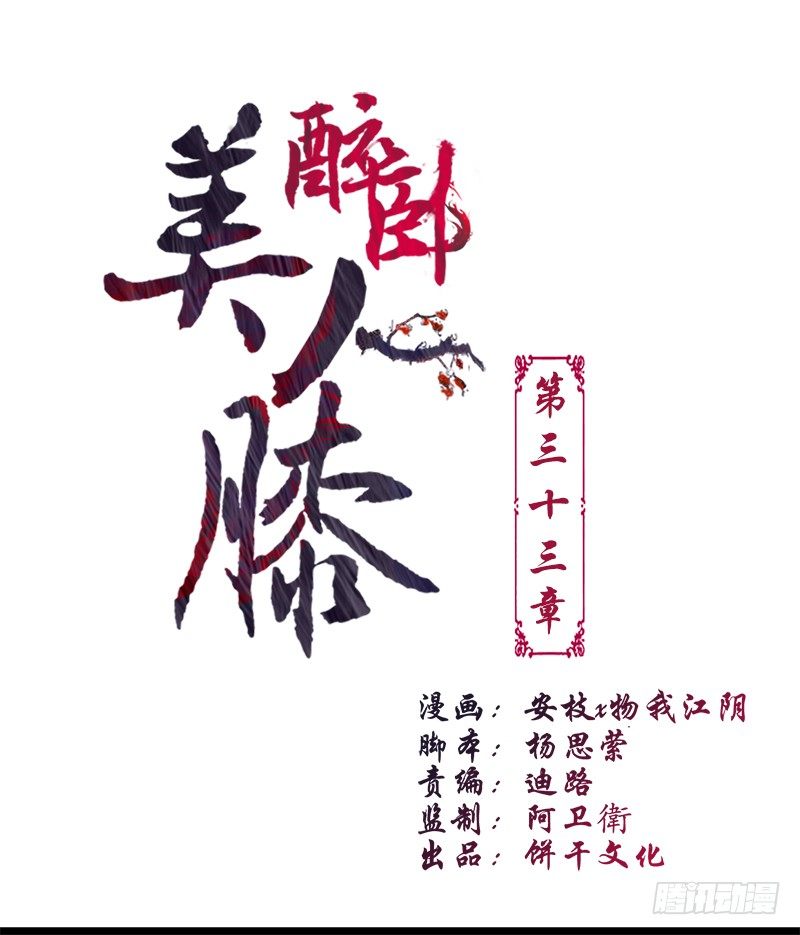 醉卧
美人膝
第三十三章
漫画：安枝x物我江阴
脚本：杨思萦
责编：迪路
监制：阿卫衛
出品：饼干文化
腾讯动漫